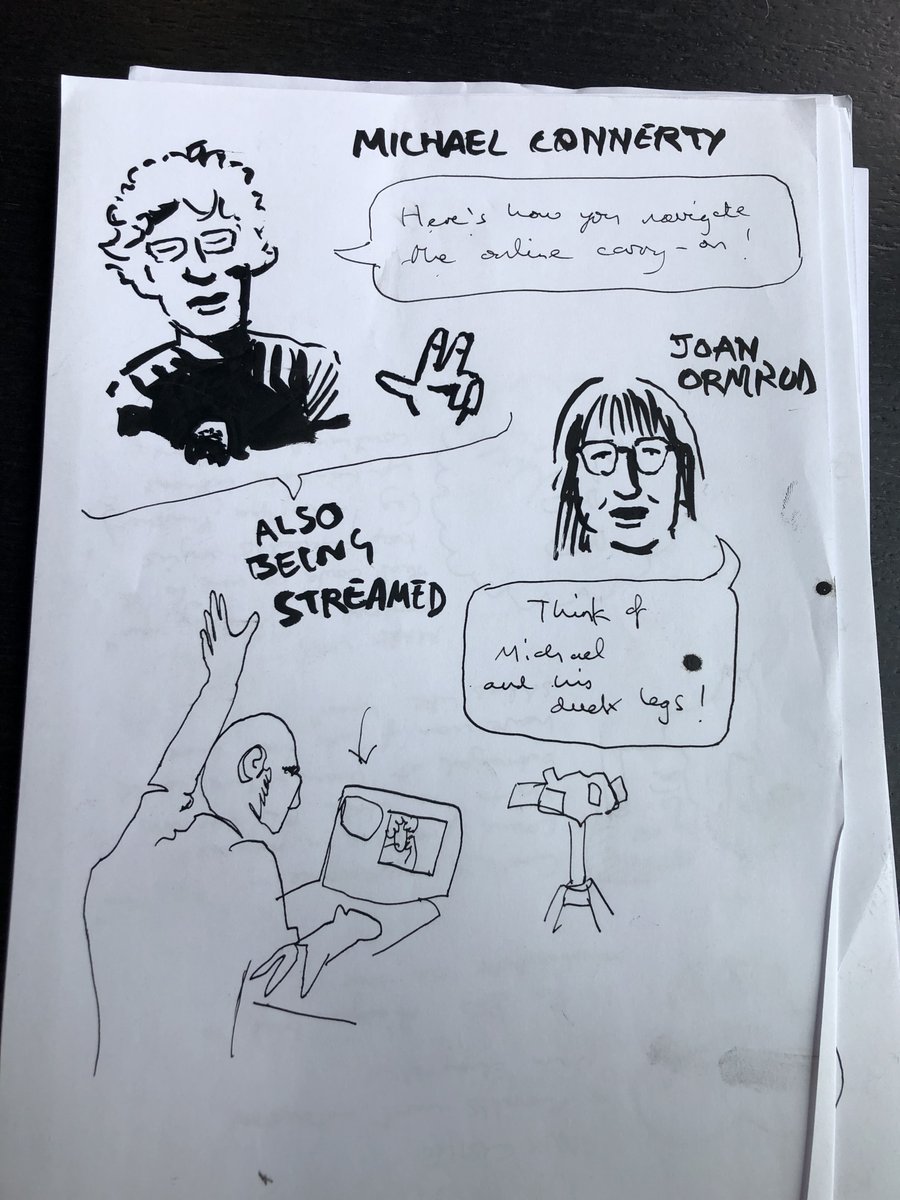 MICHAEL CONNERTY
Here's how you navigate
the online carry-on!
JOAN
ORMROD
ALSO
BEING
STREAMED
Think of
Michael
and his
duck legs!